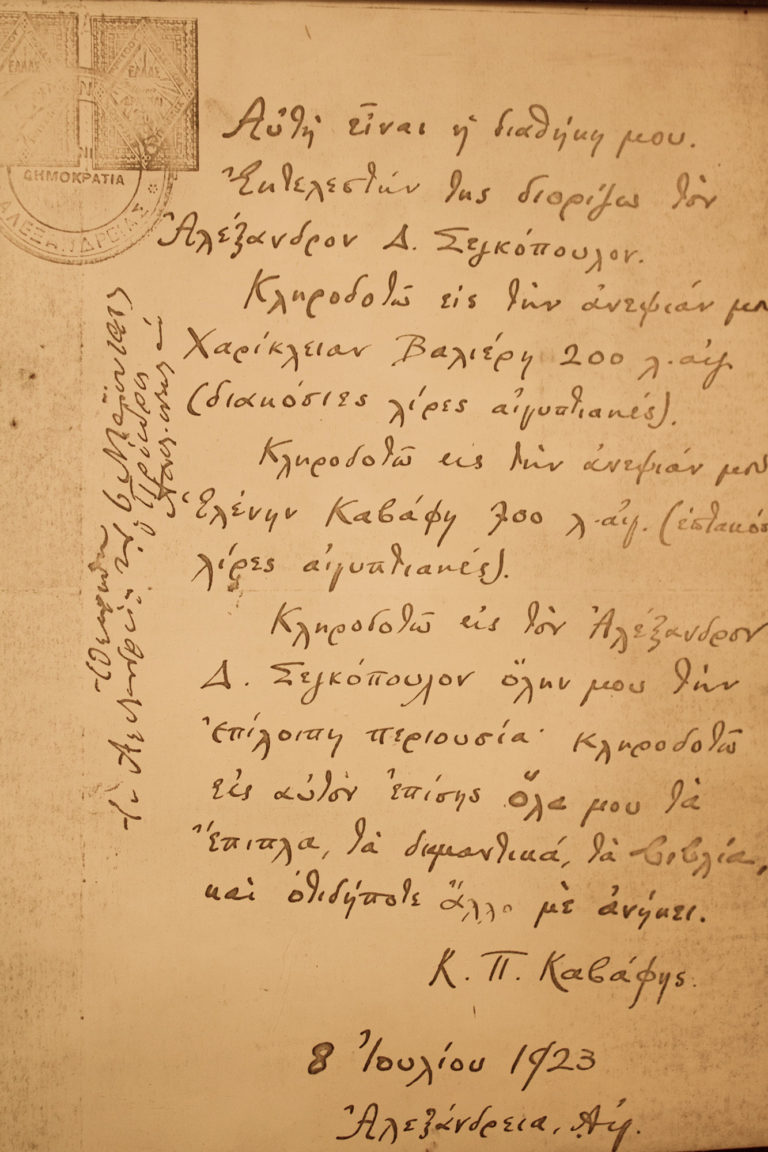 ΕΛΛΑΣ
ΕΛΛΑΣ
ΔΗΜΟΚΡΑΤΙΑ
ΑΛΕΞΑΝΔΡΕΙΑΣ
Αὐτὴ εἶναι ἡ διαθήκη μου.
Ἐκτελεστὴν της διορίζω τὸν
Ἀλέξανδρον Δ. Σεγκόπουλον.
Κληροδοτῶ εἰς τὴν ἀνεψιάν μου
Χαρίκλειαν Βαλιέρη 200 λ.αἰγ.
(διακόσιες λίρες αἰγυπτιακές).
Κληροδοτῶ εἰς τὴν ἀνεψιάν μου
Ἑλένην Καβάφη 700 λ.αἰγ. (ἑπτακόσ
λίρες αἰγυπτιακές).
Κληροδοτῶ εἰς τὸν Ἀλέξανδρον
Δ. Σεγκόπουλον ὅλην μου τὴν
ἐπίλοιπη περιουσία· κληροδοτῶ
εἰς αὐτὸν ἐπίσης ὅλα μου τὰ
ἔπιπλα, τὰ διαμαντικά, τὰ βιβλία,
καὶ ὁτιδήποτε ἄλλο μὲ ἀνήκει.
Κ. Π. Καβάφης.
8 Ἰουλίου 1923
Ἀλεξάνδρεια, Αἰγ.